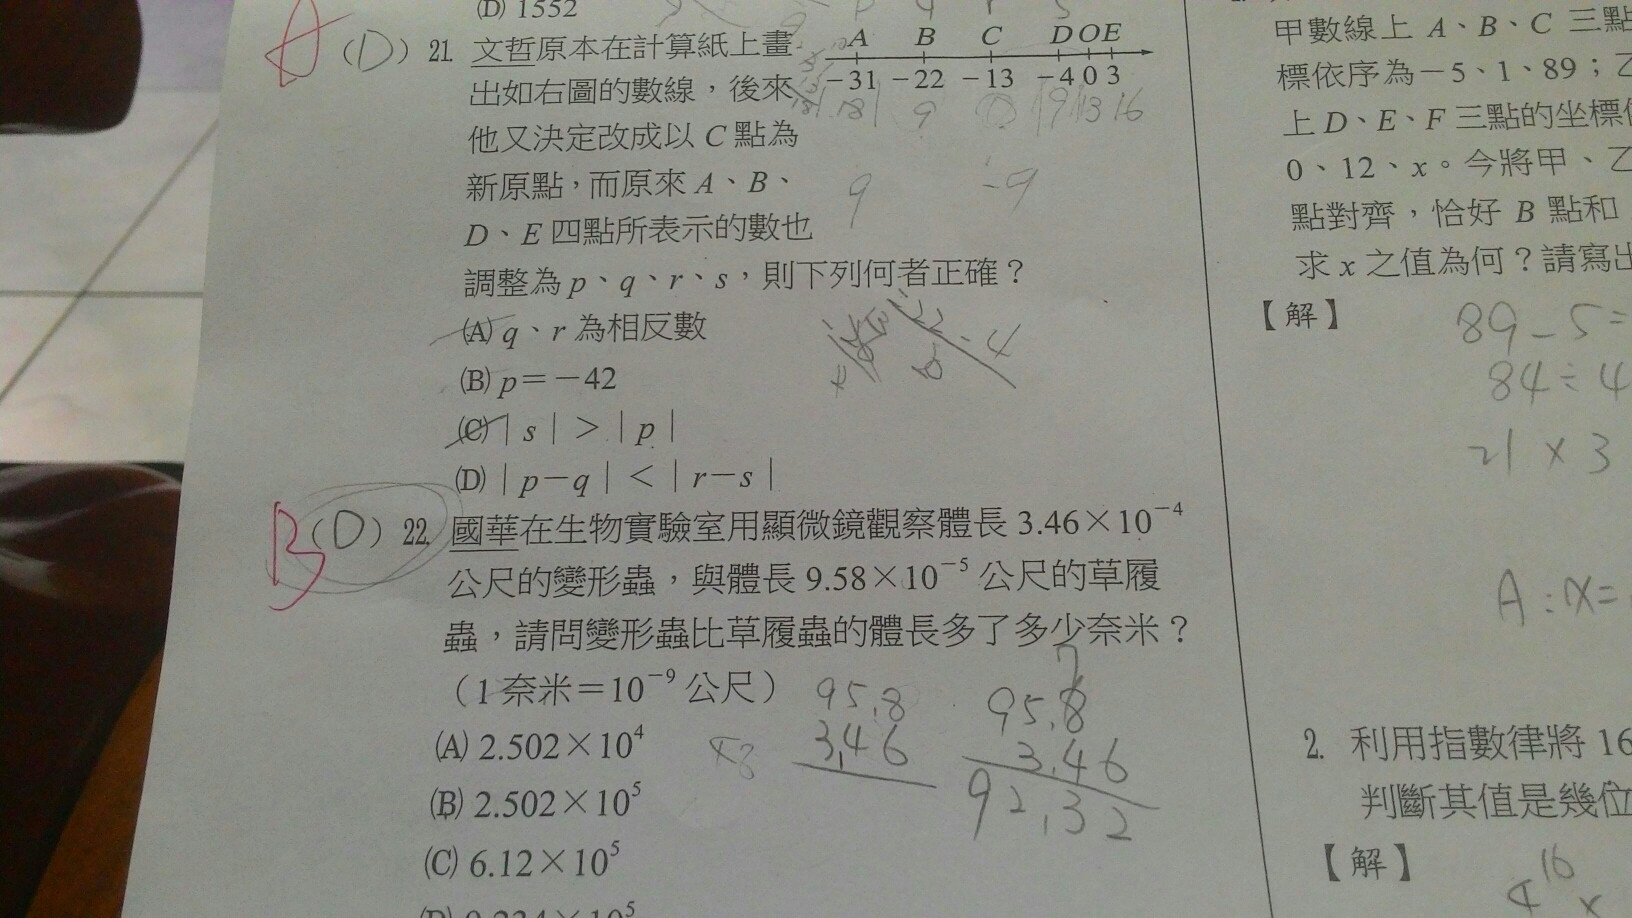 (D) 1552
A (D) 21. 文哲原本在計算紙上畫
出如右圖的數線,後來
他又決定改成以 C 點為
新原點,而原來 A、B、
D、E 四點所表示的數也
調整為 p、q、r、s,則下列何者正確?
A B C D O E
-31 -22 -13 -4 0 3
9 -9
(A) q、r 為相反數
(B) p=-42
(C) |s|>|p|
(D) |p-q|<|r-s|
B (D) 22. 國華在生物實驗室用顯微鏡觀察體長 3.46×10⁻⁴
公尺的變形蟲,與體長 9.58×10⁻⁵ 公尺的草履
蟲,請問變形蟲比草履蟲的體長多了多少奈米?
(1 奈米=10⁻⁹ 公尺)
(A) 2.502×10⁴
(B) 2.502×10⁵
(C) 6.12×10⁵
95.8
3.46
7
95.8
3.46
92.32
甲數線上 A、B、C 三點
標依序為-5、1、89;
上 D、E、F 三點的坐標
0、12、x。今將甲、乙
點對齊,恰好 B 點和
求 x 之值為何?請寫出
【解】
89-5=
84÷4
21×3
A:x=
2. 利用指數律將 16
判斷其值是幾位
【解】